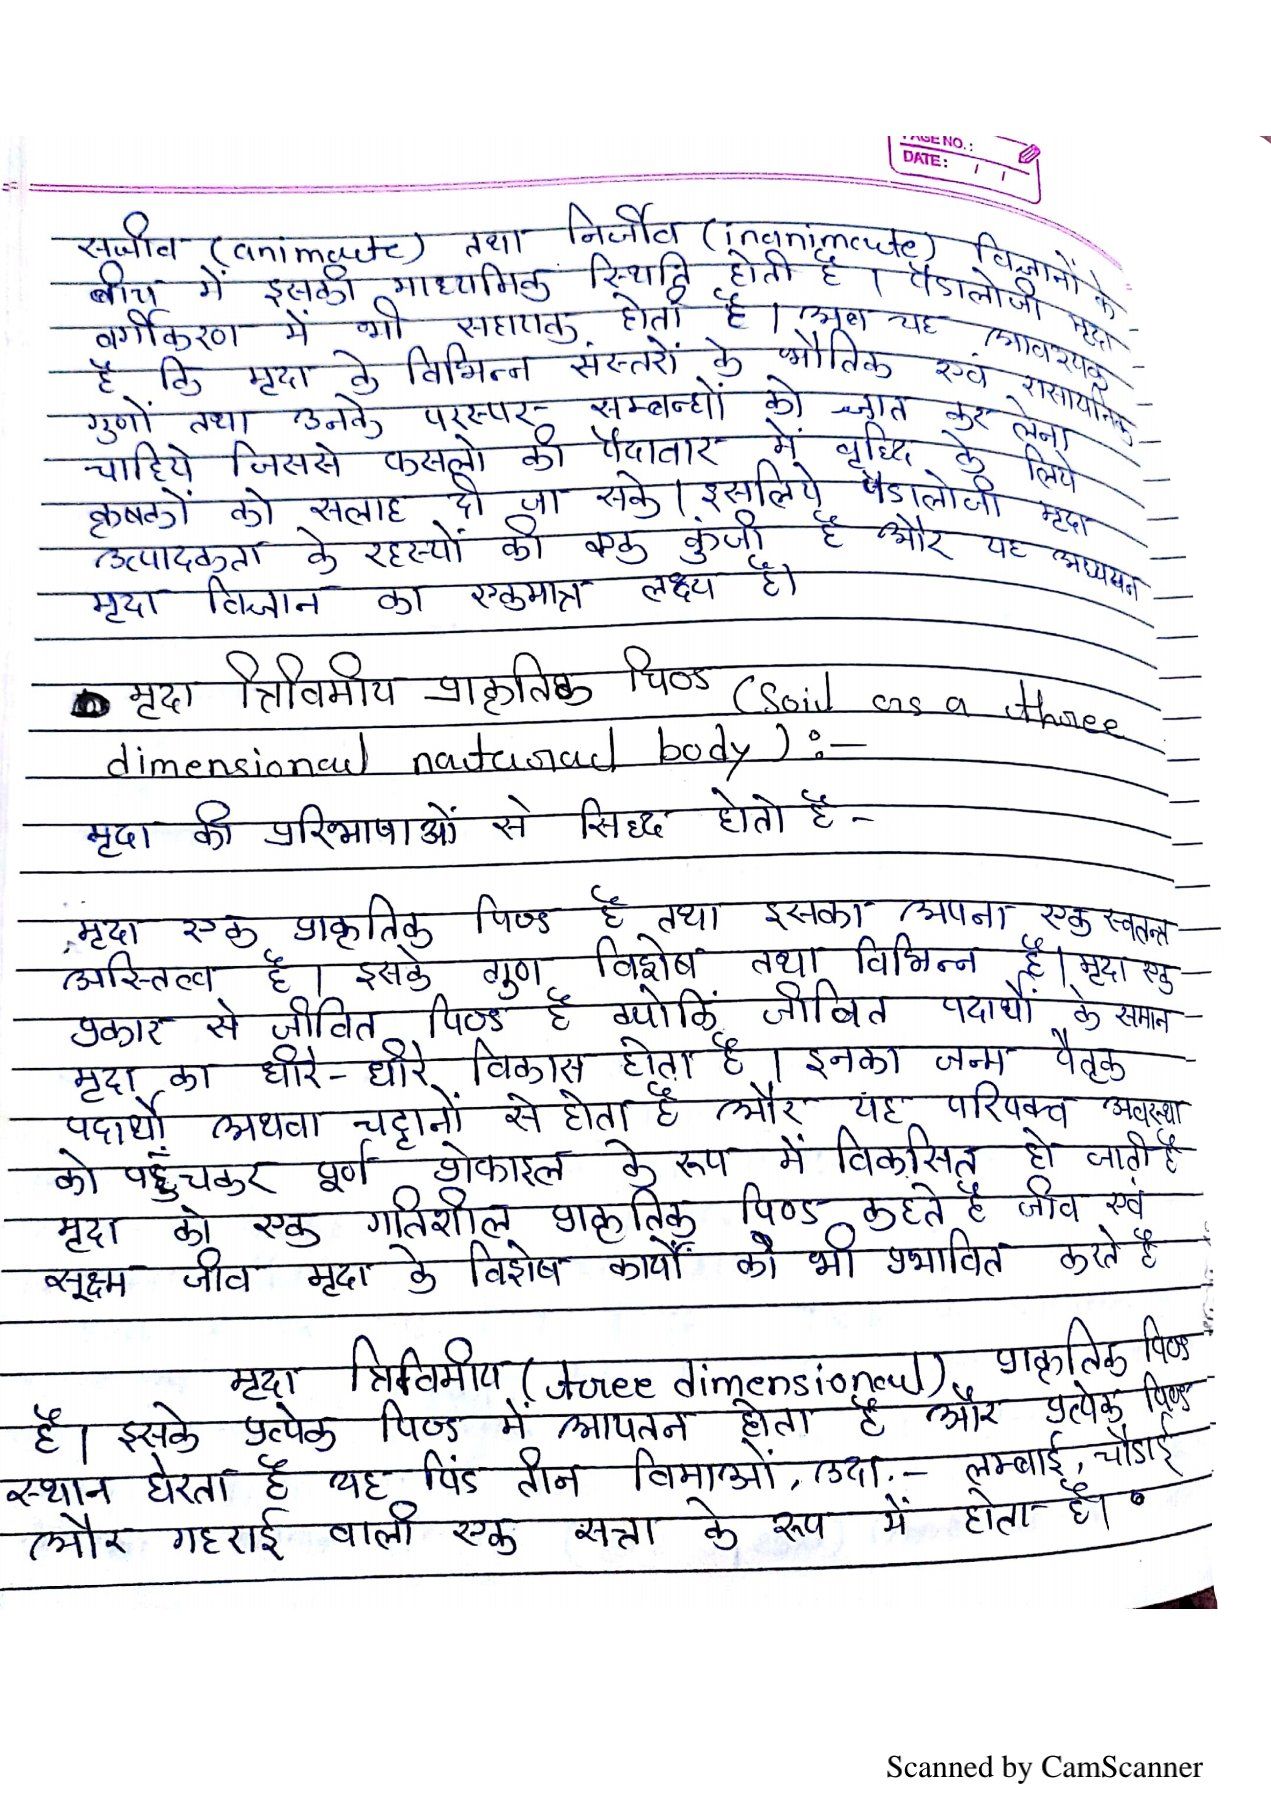 PAGE NO.:
DATE: / /
सजीव (animate) तथा निर्जीव (inanimate) विज्ञानों के
बीच में इसकी माध्यमिक स्थिति होती है। पैडालोजी मृदा
वर्गीकरण में भी सहायक होता है। अब यह आवश्यक
है कि मृदा के विभिन्न संस्तरों के भौतिक एवं रासायनिक
गुणों तथा उनके परस्पर सम्बन्धों को ज्ञात कर लेना
चाहिये जिससे फसलो की पैदावार में वृध्दि के लिये
कृषकों को सलाह दी जा सके। इसलिये पैडालोजी मृदा
उत्पादकता के रहस्यों की एक कुंजी है और यह अध्ययन
मृदा विज्ञान का एकमात्र लक्ष्य है।
मृदा त्रिविमीय प्राकृतिक पिण्ड (Soil as a three
dimensional natural body) :-
मृदा की परिभाषाओं से सिध्द होतो है -
मृदा एक प्राकृतिक पिण्ड है तथा इसका अपना एक स्वतन्त
अस्तित्व है। इसके गुण विशेष तथा विभिन्न है। मृदा एक
प्रकार से जीवित पिण्ड है क्योकिं जीवित पदार्थों के समान
मृदा का धीरे-धीरे विकास होता है। इनका जन्म पैतृक
पदार्थो अथवा चट्टानों से होता है और यह परिपक्व अवस्था
को पहुँचकर पूर्ण प्रोफाइल के रूप में विकसित हो जाती है
मृदा को एक गतिशील प्राकृतिक पिण्ड कहते है जीव एवं
सूक्ष्म जीव मृदा के विशेष कार्यों को भी प्रभावित करते है
मृदा त्रिविमीय (three dimensional) प्राकृतिक पिण्ड
है। इसके प्रत्येक पिण्ड में आयतन होता है और प्रत्येक पिण्ड
स्थान घेरता है यह पिंड तीन विमाओं, उदा.- लम्बाई, चौडाई
और गहराई वाली एक सत्ता के रूप में होता है।
Scanned by CamScanner